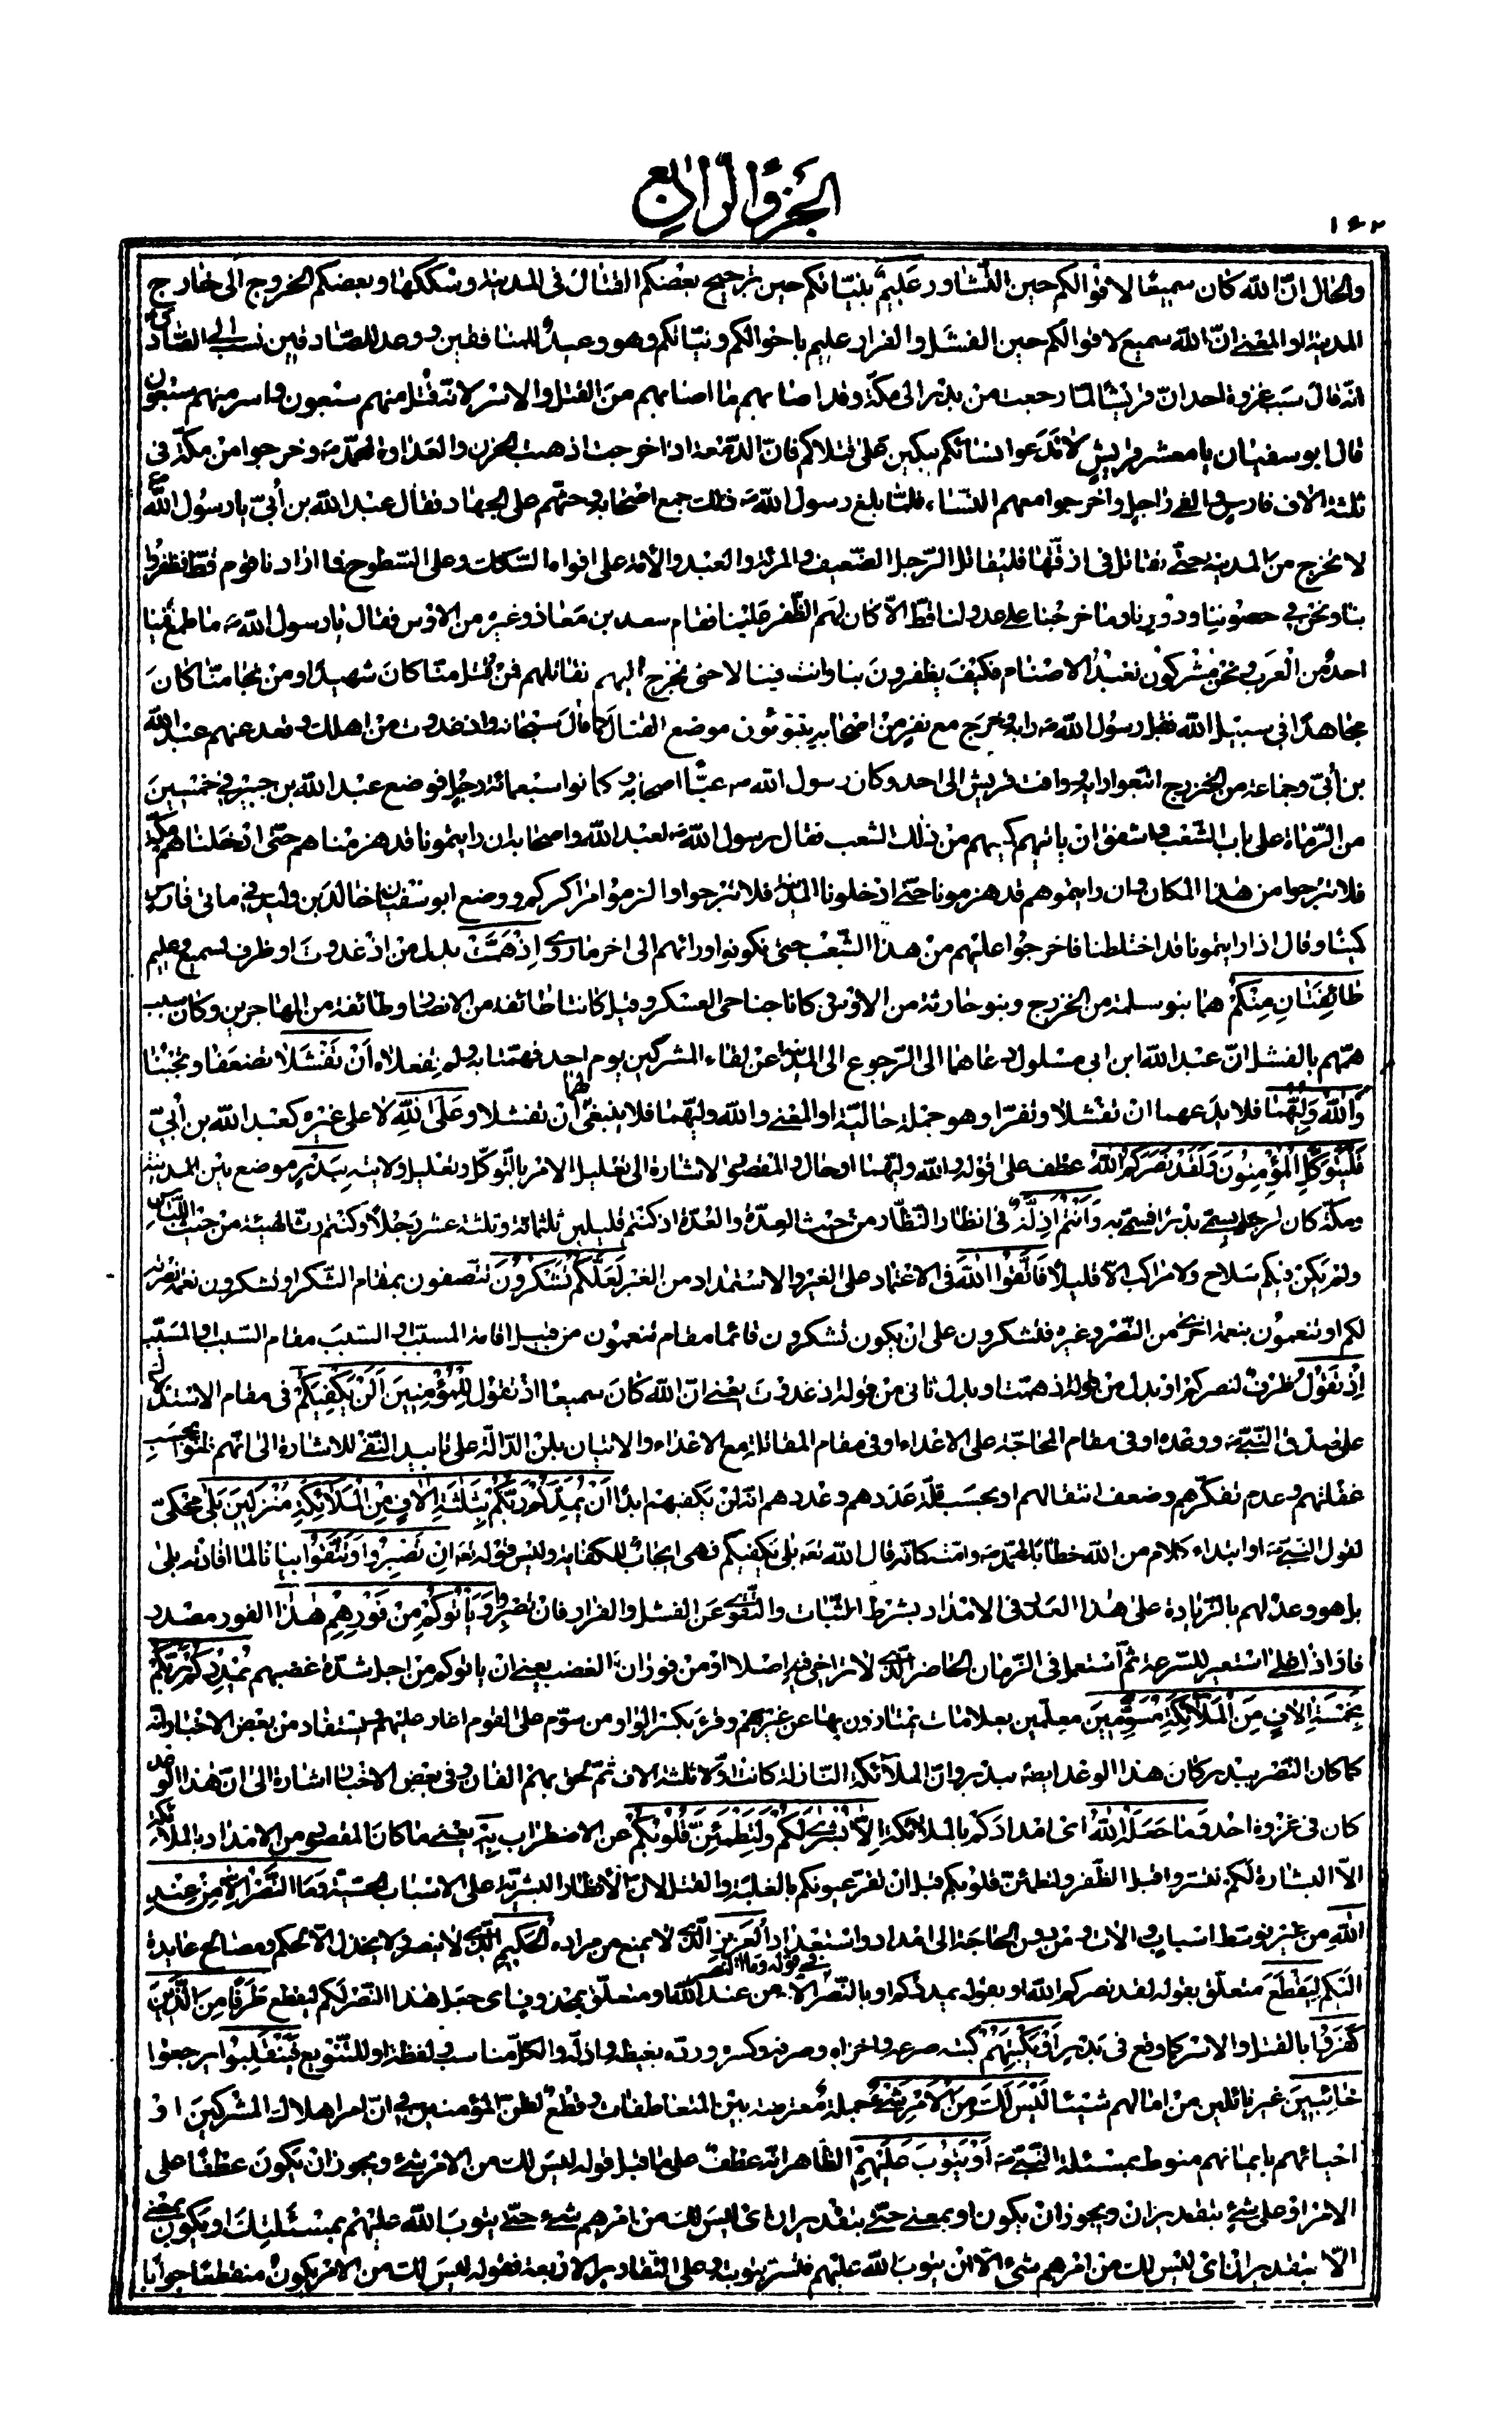 الجزؤ الرابع
١٦٢
والحال انّ الله كان سميعًا لاقوالكم حين التّشاور عَلِيمٌ بنيّاتكم حين ترجيح بعضكم القتال فى المدينة وسككها وبعضكم الخروج الى خارج
المدينة او المعنى انّ الله سميع لاقوالكم حين الفشل والفرار عليم باحوالكم ونيّاتكم وهو وعيدٌ للمنافقين ووعد للصّادقين نسب الى الصّادق
انّه قال سبب غزوة احد انّ قريشًا لمّا رجعت من بدر الى مكّة وقد اصابهم ما اصابهم من القتل والاسر لانّه قتل منهم سبعون واسر منهم سبعون
قال ابو سفيان يا معشر قريش لا تدعوا نسائكم يبكين على قتلاكم فانّ الدّمعة اذا خرجت اذهبت الحزن والعداوة لمحمّد ص وخرجوا من مكّة فى
ثلثة الاف فارس والفى راجل واخرجوا معهم النّساء، فلمّا بلغ رسول الله ص ذلك جمع اصحابه وحثّهم على الجهاد فقال عبد الله بن أبىّ يا رسول الله ص
لا نخرج من المدينة حتّى نقاتل فى ازقّتها فليقاتل الرّجل الضّعيف والمرئة والعبد والامة على افواه السّكك وعلى السّطوح فما ارادنا قوم قطّ فظفروا
بنا ونحن فى حصوننا ودورنا وما خرجنا على عدوّ لنا قطّ الاّ كان لهم الظّفر علينا فقام سعد بن معاذ وغيره من الاوس فقال يا رسول الله ص ما طمع فينا
احدٌ من العرب ونحن مشركون نعبد الاصنام فكيف يظفرون بنا وانت فينا لا حتى نخرج اليهم نقاتلهم فمن قتل منّا كان شهيدًا ومن نجا منّا كان
مجاهدًا فى سبيل الله فقبل رسول الله ص رايه وخرج مع نفر من اصحابه يتبوّؤن موضع القتال كما قال سبحانه واذ غدوت من اهلك وقعد عنهم عبد الله
بن أبىّ وجماعة من الخزرج اتّبعوا رايه ووافت قريش الى احد وكان رسول الله ص عبّا اصحابه وكانوا سبعمائة رجل فوضع عبد الله بن جبير فى خمسين
من الرّماة على باب الشّعب واشفق ان ياتيهم كمينهم من ذلك الشعب فقال رسول الله ص لعبد الله واصحابه ان رايتمونا قد هزمناهم حتّى ادخلناهم مكّة
فلا تبرحوا من هذا المكان وان رايتموهم قد هزمونا حتّى ادخلونا المدينة فلا تبرحوا والزموا مراكزكم ووضع ابو سفيان خالد بن وليد فى ماتى فارس
كمينًا وقال اذا رايتمونا قد اختلطنا فاخرجوا عليهم من هذا الشّعب حتى تكونوا ورائهم الى اخر ما روى اِذْ هَمَّتْ بدل من اذ غدوت او ظرف لسميع عليم
طائِفَتانِ مِنْكُمْ هما بنو سلمة من الخزرج وبنو حارثة من الاوس كانا جناحى العسكر وقيل كانتا طائفة من الانصار وطائفة من المهاجرين وكان سبب
همّهم بالفشل انّ عبد الله ابن ابى سلول دعاهما الى الرّجوع الى المدينة عن لقاء المشركين يوم احد فهمّتا به ولم تفعلاه اَنْ تَفْشَلا تضعفا وتجبنا
وَاللهُ وَلِيُّهُما فلا يدعهما ان تفشلا وتفرّا وهو جملة حاليّة او المعنى والله وليّهما فلا ينبغى لهما ان تفشلا وَعَلَى اللهِ لا على غيره كعبد الله بن أبىّ
فَلْيَتَوَكَّلِ الْمُؤْمِنُونَ وَلَقَدْ نَصَرَكُمُ اللهُ عطف على قوله والله وليّهما او حال والمقصود الاشارة الى تعليل الامر بالتّوكّل وتعليل ولايته بِبَدْرٍ موضع بين المدينة
ومكّة كان لرجل يسمّى بدرًا فسمّى به وَاَنْتُمْ اَذِلَّةٌ فى انظار النّظّار من حيث العِدّة والعُدّة اذ كنتم قليلين ثلثمائة وثلثة عشر رجلاً وكنتم رثّ الهيئة من حيث اللّباس
ولم يكن فيكم سلاح ولا مراكب الاّ قليلاً فَاتَّقُوا اللهَ فى الاعتماد على الغير والاستمداد من الغير لَعَلَّكُمْ تَشْكُرُونَ تتّصفون بمقام الشّكر او تشكرون نعمة نصرته
لكم او تنعمون بنعمة اخرى من النّصر وغيره فتشكرون على ان يكون تشكرون قائما مقام تنعمون من قبيل اقامة المسبّب والسّبب مقام السّبب والمسبّب
اِذْ تَقُولُ ظرفٌ لنصركم او بدل من قوله اذ همّت او بدل ثانى من قوله اذ غدوت يعنى انّ الله كان سميعًا اذ تقول لِلْمُؤْمِنِينَ اَلَنْ يَكْفِيَكُمْ فى مقام الاستدلال
على صدق النّبىّ ص ووعده او فى مقام المحاجّة على الاعداء او فى مقام المقاتلة مع الاعداء والاتيان بلن الدّالّة على تابيد النّفى للاشارة الى انّهم ظنّوا بحسب
غفلتهم وعدم تفكّرهم وضعف اتّكالهم او بحسب قلّة عَددهم وعُددهم انّه لن يكفيهم ابدًا اَنْ يُمِدَّكُمْ رَبُّكُمْ بِثَلثَةِ الافٍ مِنَ الْمَلائِكَةِ مُنْزَلِينَ بَلى محكىّ
لقول النّبىّ ص او ابتداء كلام من الله خطابًا لمحمّد ص وامّته كانّه قال الله تعه بلى يكفيكم فهى ايجابٌ للكفاية وليس قوله تعه اِنْ تَصْبِرُوا وَتَتَّقُوا بيانا لما افادته بلى
بل هو وعد لهم بالزّيادة على هذا العدد فى الامداد بشرط الثّبات والتّقوى عن الفشل والفرار فان تصبروا وَيَأْتُوكُمْ مِنْ فَوْرِهِمْ هٰذا الفور مصدر
فار اذا غلى استعير للسّرعة ثمّ استعمل فى الزّمان الحاضر الّذى لا تراخى فيه اصلا او من فوران الغضب يعنى ان ياتوكم من اجل شدّة غضبهم يُمْدِدْكُمْ رَبُّكُمْ
بِخَمْسَةِ الافٍ مِنَ الْمَلائِكَةِ مُسَوِّمِينَ معلّمين بعلامات يمتازون بها عن غيرهم وقرء بكسر الواو من سوّم على القوم اغار عليهم ويستفاد من بعض الاخبار انّه
كما كان النّصر ببدر كان هذا الوعد ايضا ببدر وانّ الملائكة النّازلة كانت اوّلا ثلثة الاف ثمّ لحق بهم الفان وفى بعض الاخبار اشارة الى انّ هذا الوعد
كان فى غزوة احد وَما جَعَلَهُ اللهُ اى امدادكم بالملائكة اِلاّ بُشْرى لَكُمْ وَلِتَطْمَئِنَّ قُلُوبُكُمْ عن الاضطراب بِهِ يعنى ما كان المقصود من الامداد بالملائكة
الاّ البشارة لكم تستروا قبل الظّفر ولتطمئنّ قلوبكم قبل ان تقرّ عيونكم بالغلبة والقتل لانّ الانظار البشريّة على الاسباب الحسّيّة وَمَا النَّصْرُ اِلاّ مِنْ عِنْدِ
اللهِ من غير توسّط اسباب والات ومن دون الحاجة الى امداد واستعداد الْعَزِيزِ الّذى لا يمنع من مراده الْحَكِيمِ الّذى لا ينصر ولا يخذل الاّ لحكم ومصالح عايدة
اليكم لِيَقْطَعَ متعلّق بقوله لقد نصركم الله او بقوله يمددكم او بالنّصر فى قوله وما النّصر الاّ من عند الله او متعلّق بمحذوف اى جعل هذا النّصر لكم ليقطع طَرَفًا مِنَ الَّذِينَ
كَفَرُوا بالقتل والاسر كما وقع فى بدر اَوْ يَكْبِتَهُمْ كبته صرعه واخزاه وصرفه وكسره وردّه بغيظه واذلّه والكلّ مناسب ولفظة او للتّنويع فَيَنْقَلِبُوا يرجعوا
خائِبِينَ غير نائلين من امالهم شيئًا لَيْسَ لَكَ مِنَ الْاَمْرِ شَىْءٌ جملة معترضة بين المتعاطفات وقطع لظنّ المؤمنين فى انّ امر اهلاك المشركين او
احيائهم بايمانهم منوط بمسئلة النّبىّ ص اَوْ يَتُوبَ عَلَيْهِمْ الظّاهر انّه عطف على ما قبل قوله ليس لك من الامر شىء ويجوز ان يكون عطفًا على
الامر او على شىء بتقدير ان ويجوز ان يكون او بمعنى حتّى بتقدير ان اى ليس لك من امرهم شىء حتّى يتوب الله عليهم بمسئلتك او يكون بمعنى
الاّ بتقدير ان اى ليس لك من امرهم شىء الاّ ان يتوب الله عليهم فتسرّ بتوبته وعلى التّقادير الاربعة فقوله ليس لك من الامر يكون منقطعًا جوابا